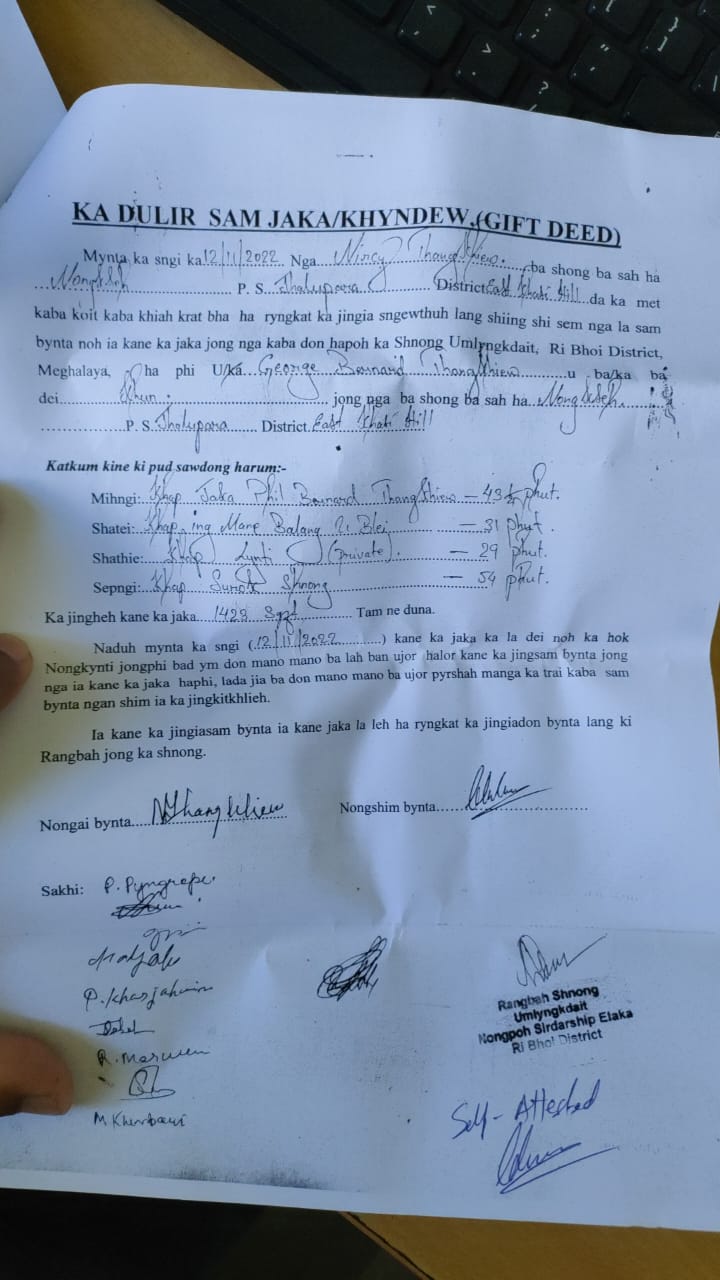 KA DULIR SAM JAKA/KHYNDEW.(GIFT DEED)
Mynta ka sngi ka 12/11/2022 Nga Nircy Thangkhiew. ba shong ba sah ha
Nongkseh P. S. Jhalupara District East Khasi Hill da ka met
kaba koit kaba khiah krat bha ha ryngkat ka jingia sngewthuh lang shiing shi sem nga la sam
bynta noh ia kane ka jaka jong nga kaba don hapoh ka Shnong Umlyngkdait, Ri Bhoi District,
Meghalaya, ha phi U/ka George Barnard Thangkhiew u ba/ka ba
dei Khun jong nga ba shong ba sah ha Nongkseh.
P. S. Jhalupara District East Khasi Hill
Katkum kine ki pud sawdong harum:-
Mihngi: Khap Jaka Phil Barnard Thangkhiew – 43½ phut.
Shatei: Khap ing Mane Balang U Blei – 31 phut.
Shathie: Khap Lynti (private). – 29 phut.
Sepngi: Khap Surok Shnong – 54 phut.
Ka jingheh kane ka jaka 1423 Sqft Tam ne duna.
Naduh mynta ka sngi (12/11/2022) kane ka jaka ka la dei noh ka hok
Nongkynti jongphi bad ym don mano mano ba lah ban ujor halor kane ka jingsam bynta jong
nga ia kane ka jaka haphi, lada jia ba don mano mano ba ujor pyrshah manga ka trai kaba sam
bynta ngan shim ia ka jingkitkhlieh.
Ia kane ka jingiasam bynta ia kane jaka la leh ha ryngkat ka jingiadon bynta lang ki
Rangbah jong ka shnong.
Nongai bynta NThangkhiew Nongshim bynta
Sakhi: P. Pyngrope.
P. Kharjahrin
R. Marwein
M Kharbani
Rangbah Shnong
Umlyngkdait
Nongpoh Sirdarship Elaka
Ri Bhoi District
Self-Attested